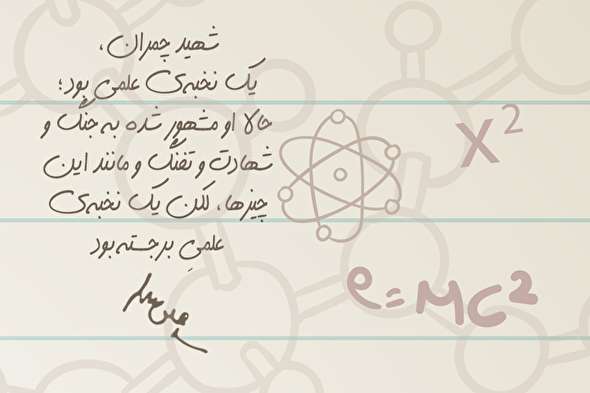 شهید چمران،
یک نخبه‌ی علمی بود؛
حالا او مشهور شده به جنگ و
شهادت و تفنگ و مانند این
چیزها، لکن یک نخبه‌ی
علمیِ برجسته بود
x²
e=mc²